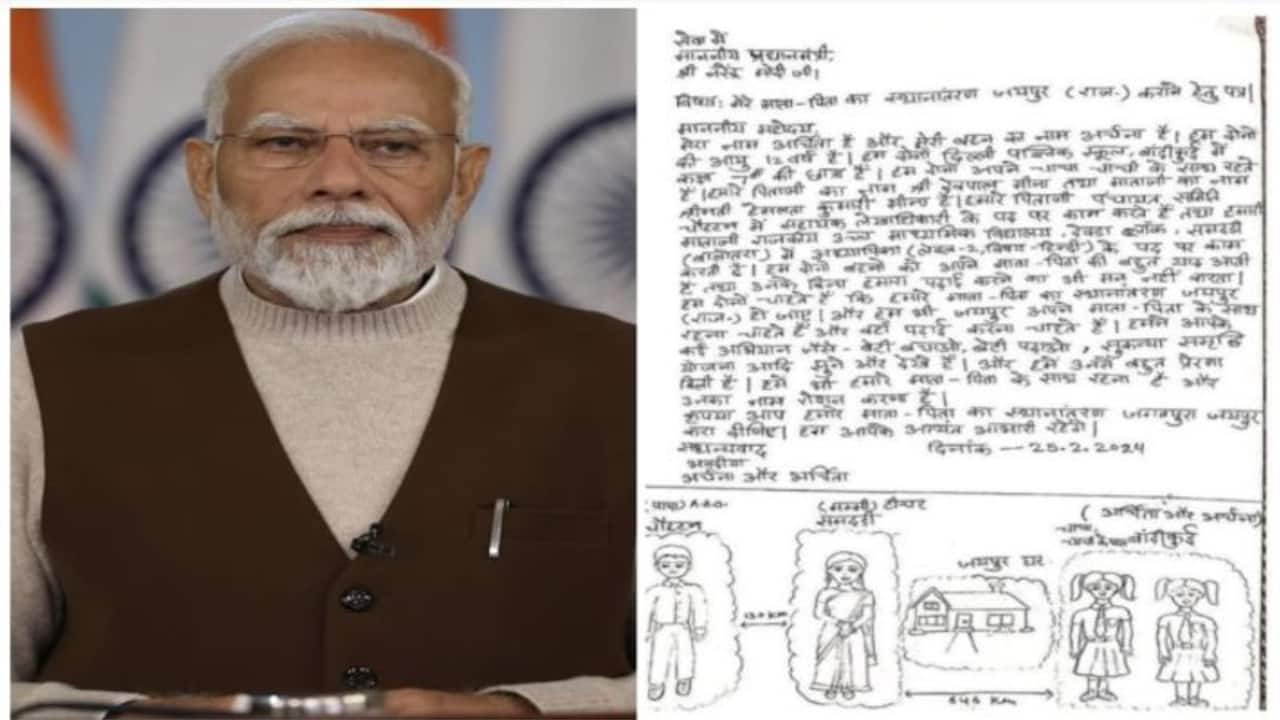 सेवा में
माननीय प्रधानमंत्री,
श्री नरेंद्र मोदी जी।
विषय: मेरे माता-पिता का स्थानांतरण जयपुर (राज.) कराने हेतु पत्र।
माननीय महोदय,
मेरा नाम अर्चिता है और मेरी बहन का नाम अर्चना है। हम दोनों
की आयु 12 वर्ष है। हम दोनों दिल्ली पब्लिक स्कूल, बांदीकुई में
कक्षा 7 की छात्रा हैं। हम दोनों अपने चाचा-चाची के साथ रहते
हैं। हमारे पिताजी का नाम श्री देवपाल मीना तथा माताजी का नाम
श्रीमती हेमलता कुमारी मीना है। हमारे पिताजी पंचायत समिति
चौहटन में सहायक लेखाधिकारी के पद पर काम करते हैं तथा हमारी
माताजी राजकीय उच्च माध्यमिक विद्यालय, देवड़ा ब्लॉक, समदड़ी
(बालोतरा) में अध्यापिका (लेवल-2, विषय-हिन्दी) के पद पर काम
करती हैं। हम दोनों बहनों को अपने माता-पिता की बहुत याद आती
है तथा उनके बिना हमारा पढ़ाई करने का भी मन नहीं करता।
हम दोनों चाहते हैं कि हमारे माता-पिता का स्थानांतरण जयपुर
(राज.) हो जाए। और हम भी जयपुर अपने माता-पिता के साथ
रहना चाहते हैं और वहाँ पढ़ाई करना चाहते हैं। हमने आपके
कई अभियान जैसे- बेटी बचाओ, बेटी पढ़ाओ, सुकन्या समृद्धि
योजना आदि सुने और देखे हैं। और हमें उनसे बहुत प्रेरणा
मिली है। हमें भी हमारे माता-पिता के साथ रहना है और
उनका नाम रोशन करना है।
कृपया आप हमारे माता-पिता का स्थानांतरण जगतपुरा जयपुर
करा दीजिए। हम आपके अत्यंत आभारी रहेंगे।
सधन्यवाद दिनांक -- 25.2.2024
अर्चना और अर्चिता
(पापा) A.A.O. (मम्मी) टीचर (अर्चिता और अर्चना)
चौहटन समदड़ी बांदीकुई
जयपुर घर
130 km
545 Km